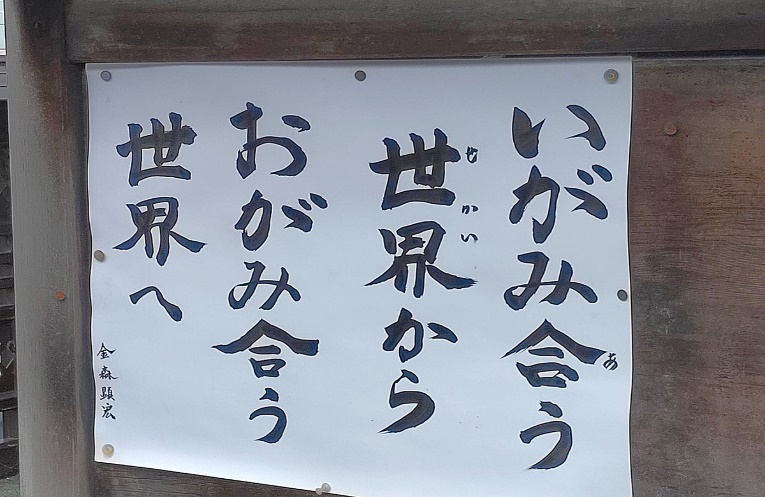 いがみ合う
世界から
おがみ合う
世界へ
金森顕宏